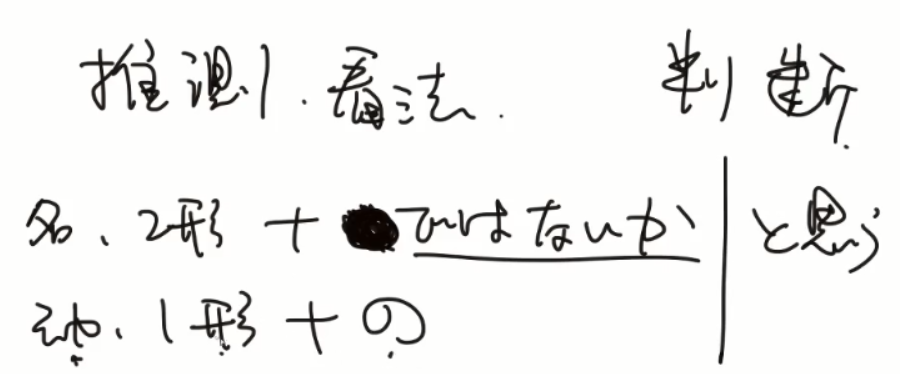 推测、看法. 判断.
名、2形 + ではないか | と思う
动、1形 + の